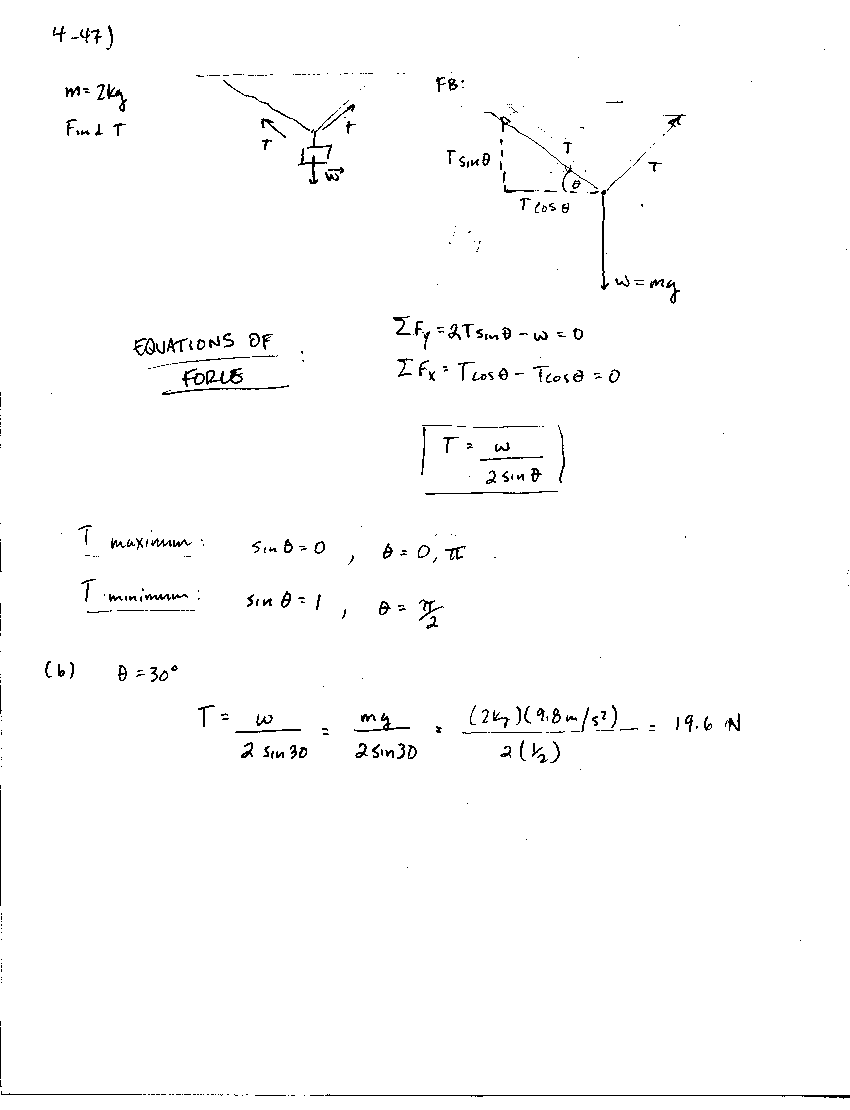 4-47)
m = 2kg
Find T
T
T
w
FB:
T sinθ
T
θ
T
T cosθ
w = mg
EQUATIONS OF
FORCE :
ΣFy = 2T sinθ - w = 0
ΣFx = T cosθ - T cosθ = 0
T = w / 2 sinθ
T maximum: sinθ = 0 , θ = 0, π
T minimum: sinθ = 1 , θ = π/2
(b) θ = 30°
T = w / 2 sin30 = mg / 2 sin30 = (2kg)(9.8 m/s²) / 2(1/2) = 19.6 N